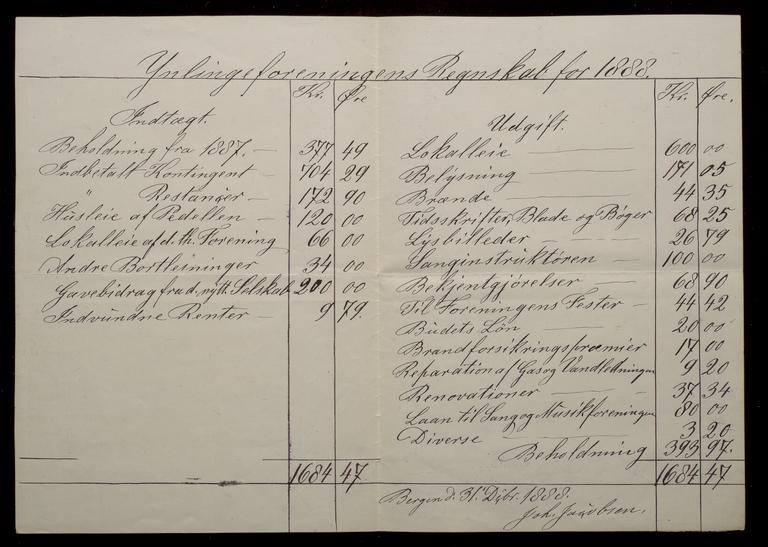 Ynlingeforeningens Regnskab for 1888.
Kr. Øre
Indtægt.
Beholdning fra 1887. — 377 49
Indbetalt Kontingent — 704 29
" Restancer — 172 90
Husleie af Pedellen — 120 00
Lokalleie af d. th. Forening 66 00
Andre Bortleininger 34 00
Gavebidrag fra d. nytt. Selskab 200 00
Indvundne Renter — 9 79.
1684 47
Kr. Øre.
Udgift.
Lokalleie — 600 00
Belysning — 171 05
Brænde — 44 35
Tidsskrifter, Blade og Bøger 68 25
Lysbilleder — 26 79
Sanginstruktören — 100 00
Bekjentgjörelser — 68 90
Til Foreningens Fester — 44 42
Budets Lön — 20 00
Brandforsikringspræmier 17 00
Reparation af Gas og Vandledningen 9 20
Renovationer — 37 34
Laan til Sang og Musikforeningen 80 00
Diverse — 3 20
Beholdning 393 97.
1684 47
Bergen d. 31. Dcbr. 1888.
Joh. Jacobsen.